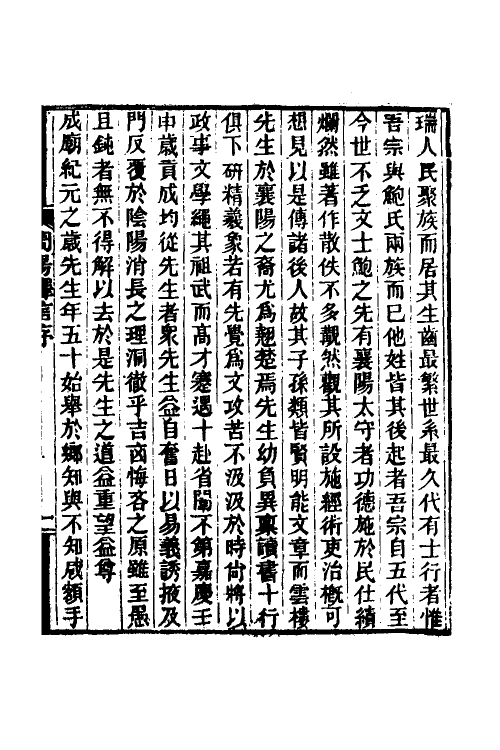 瑞人民聚族而居其生齒最繁世系最久代有士行者惟
吾宗與鮑氏兩族而已他姓皆其後起者吾宗自五代至
今世不乏文士鮑之先有襄陽太守者功德施於民仕績
爛然雖著作散佚不多覯然觀其所設施經術吏治槪可
想見以是傳諸後人故其子孫類皆賢明能文章而雲樓
先生於襄陽之裔尤爲翹楚焉先生幼負異稟讀書十行
俱下研精羲象若有先覺爲文攻苦不汲汲於時尙將以
政事文學繩其祖武而高才蹇遇十赴省闈不第嘉慶壬
申歲貢成均從先生者衆先生益自奮日以易義誘掖及
門反覆於陰陽消長之理洞徹乎吉凶悔吝之原雖至愚
且鈍者無不得解以去於是先生之道益重望益尊
成廟紀元之歲先生年五十始舉於鄉知與不知咸額手
周易
言序
一